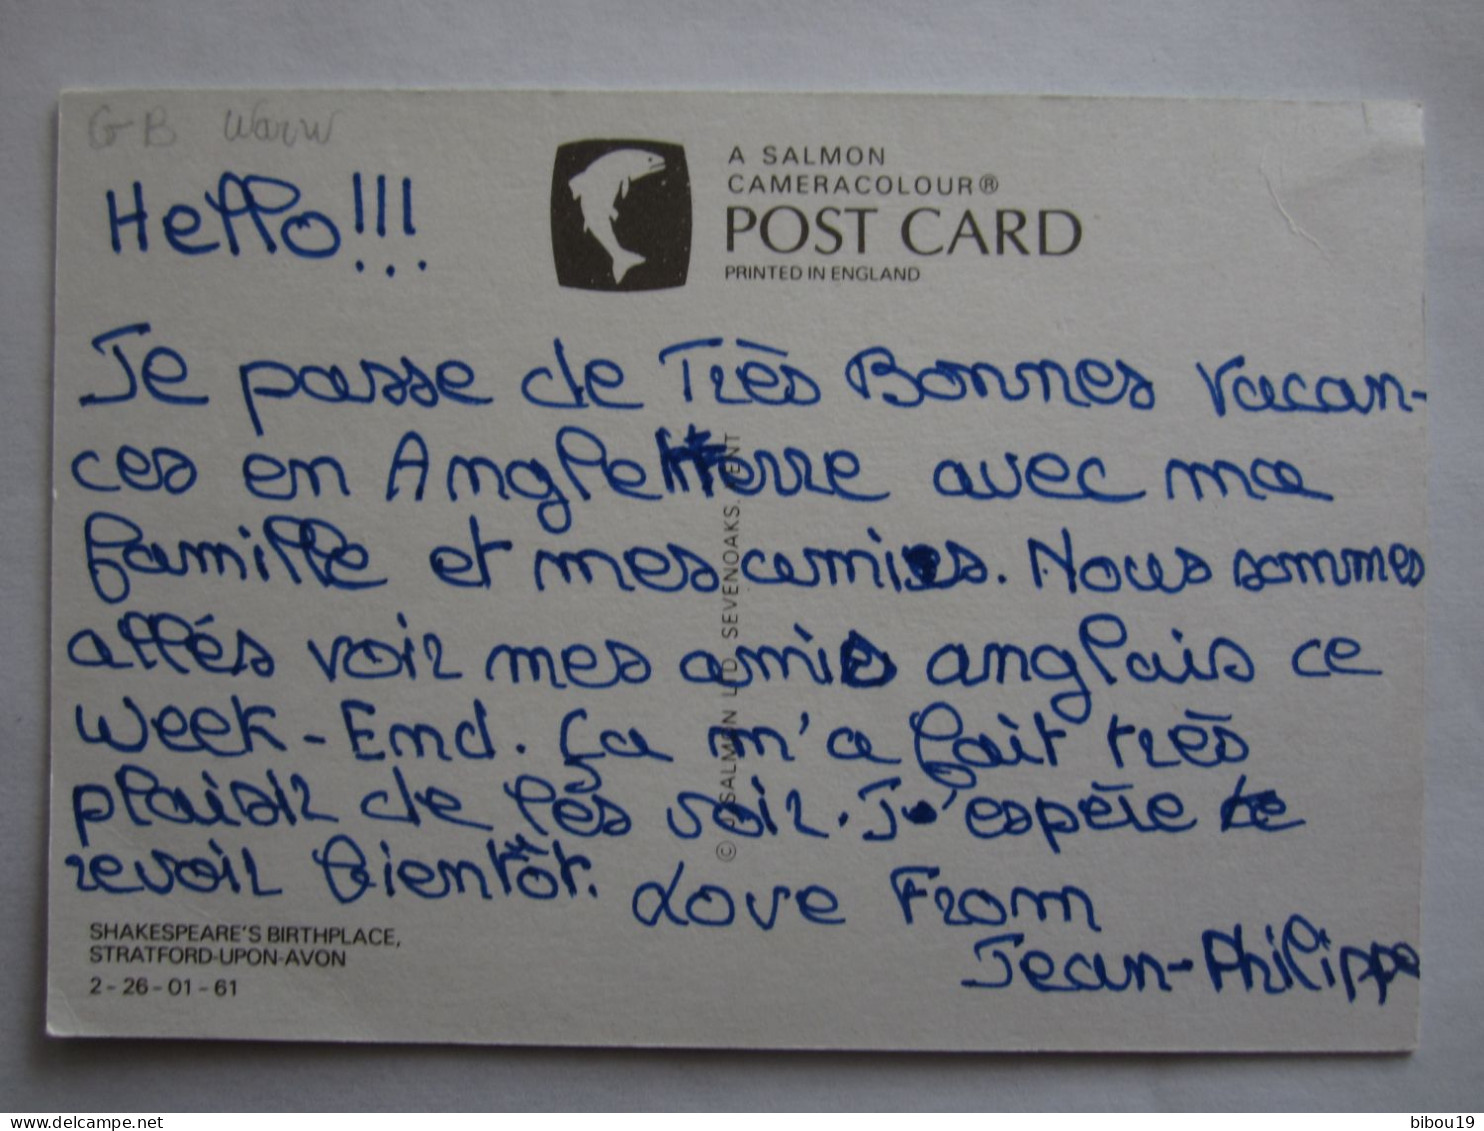 GB Warw
Hello!!!
A SALMON
CAMERACOLOUR®
POST CARD
PRINTED IN ENGLAND
Je passe de Très Bonnes vacan-
ces en Angleterre avec ma
famille et mes amis. Nous sommes
allés voir mes amis anglais ce
Week-End. Ça m'a fait très
plaisir de les voir. J'espère te
revoir bientôt. Love From
Jean-Philippe
© J. SALMON LTD. SEVENOAKS. KENT
SHAKESPEARE'S BIRTHPLACE,
STRATFORD-UPON-AVON
2-26-01-61
delcampe.net
bibou19